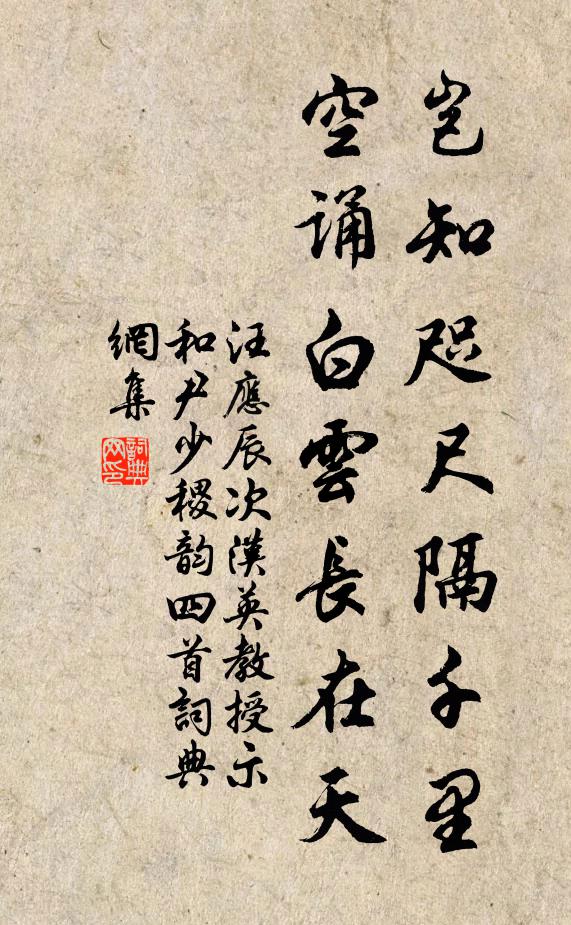 豈知咫尺隔千里
空誦白雲長在天
汪應辰次漢英教授示
和尹少稷韵四首詞典
網集
詞典
网印